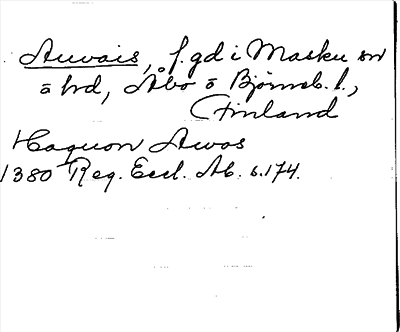 Auvais, f. gd i Masku sn
o hd, Åbo o Björneb. l.,
Finland
Haquon Awos
1380 Reg. Eccl. Ab. s. 174.